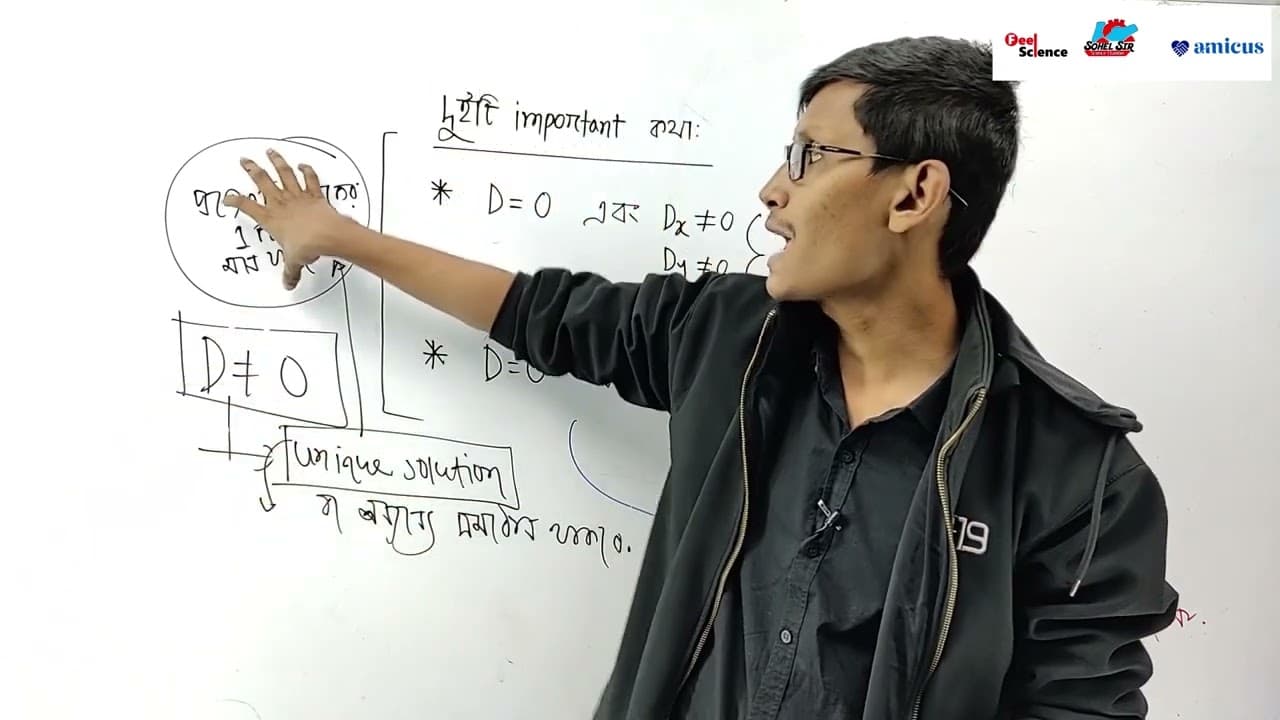 Feel Science
SOHEL SIR
amicus
দুইটি important কথা:
* D = 0 এবং Dx ≠ 0
Dy ≠ 0
* D = 0
1
D ≠ 0
unique solution
বা অনন্য সমাধান থাকবে.
19